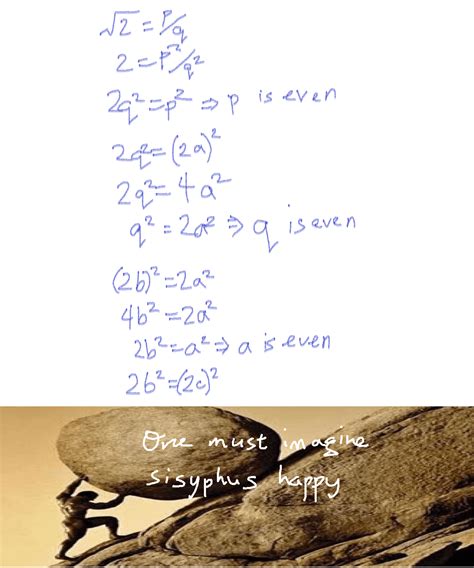 √2 = p/q
2 = p²/q²
2q² = p² ⇒ p is even
2q² = (2a)²
2q² = 4a²
q² = 2a² ⇒ q is even
(2b)² = 2a²
4b² = 2a²
2b² = a² ⇒ a is even
2b² = (2c)²
One must imagine
sisyphus happy